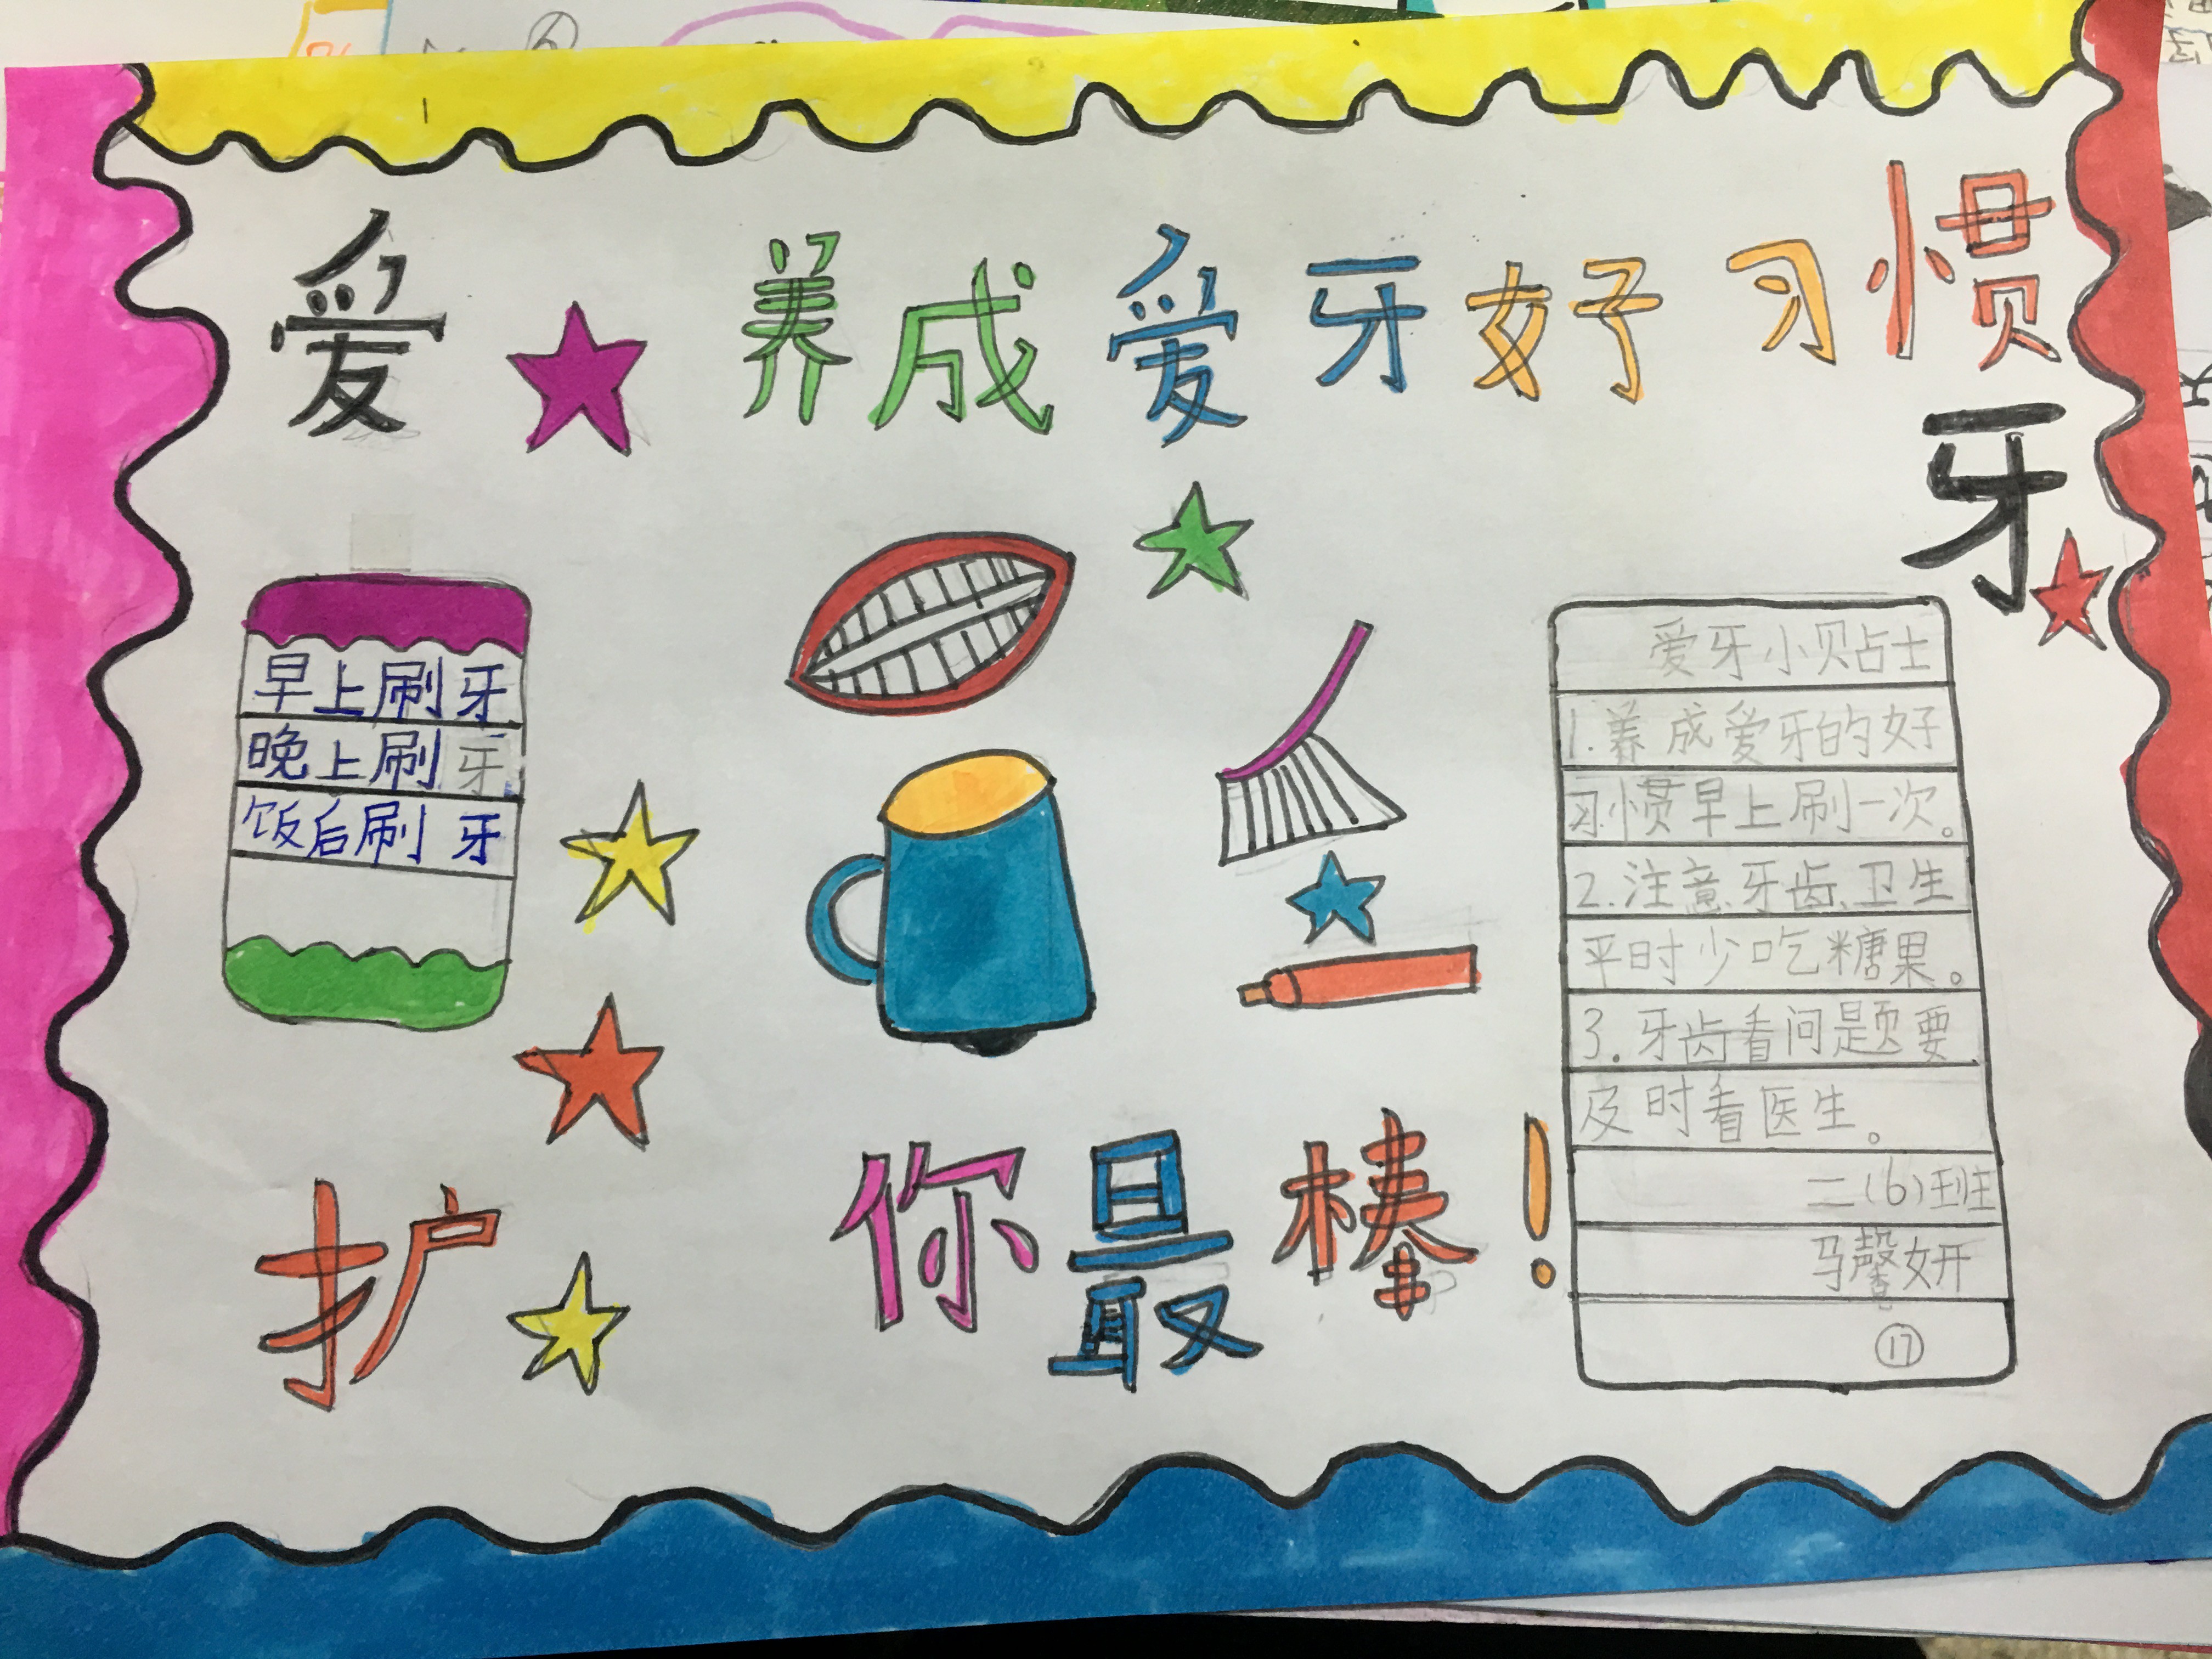 爱 养成爱牙好习惯
牙
早上刷牙
晚上刷牙
饭后刷牙
爱牙小贝占士
1.养成爱牙的好
习惯早上刷一次。
2.注意牙齿卫生
平时少吃糖果。
3.牙齿看问题要
及时看医生。
二(6)班
马馨妍
⑰
护
你最棒!